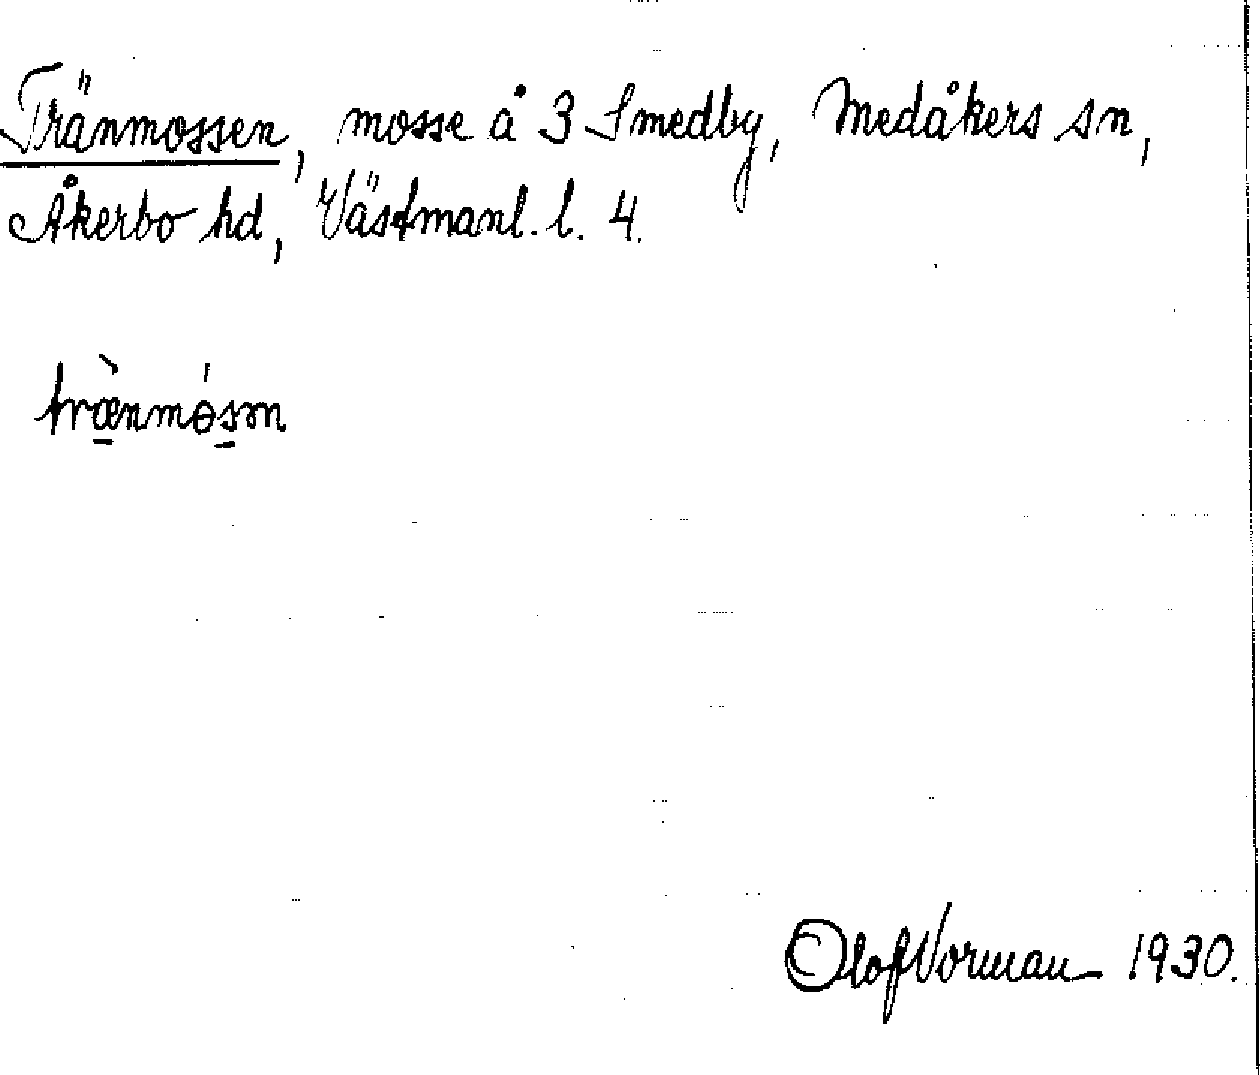 Tränmossen, mosse å 3 Smedby, Medåkers sn,
Åkerbo hd, Västmanl. l. 4.
træ̀nmósm
Olof Norman 1930.